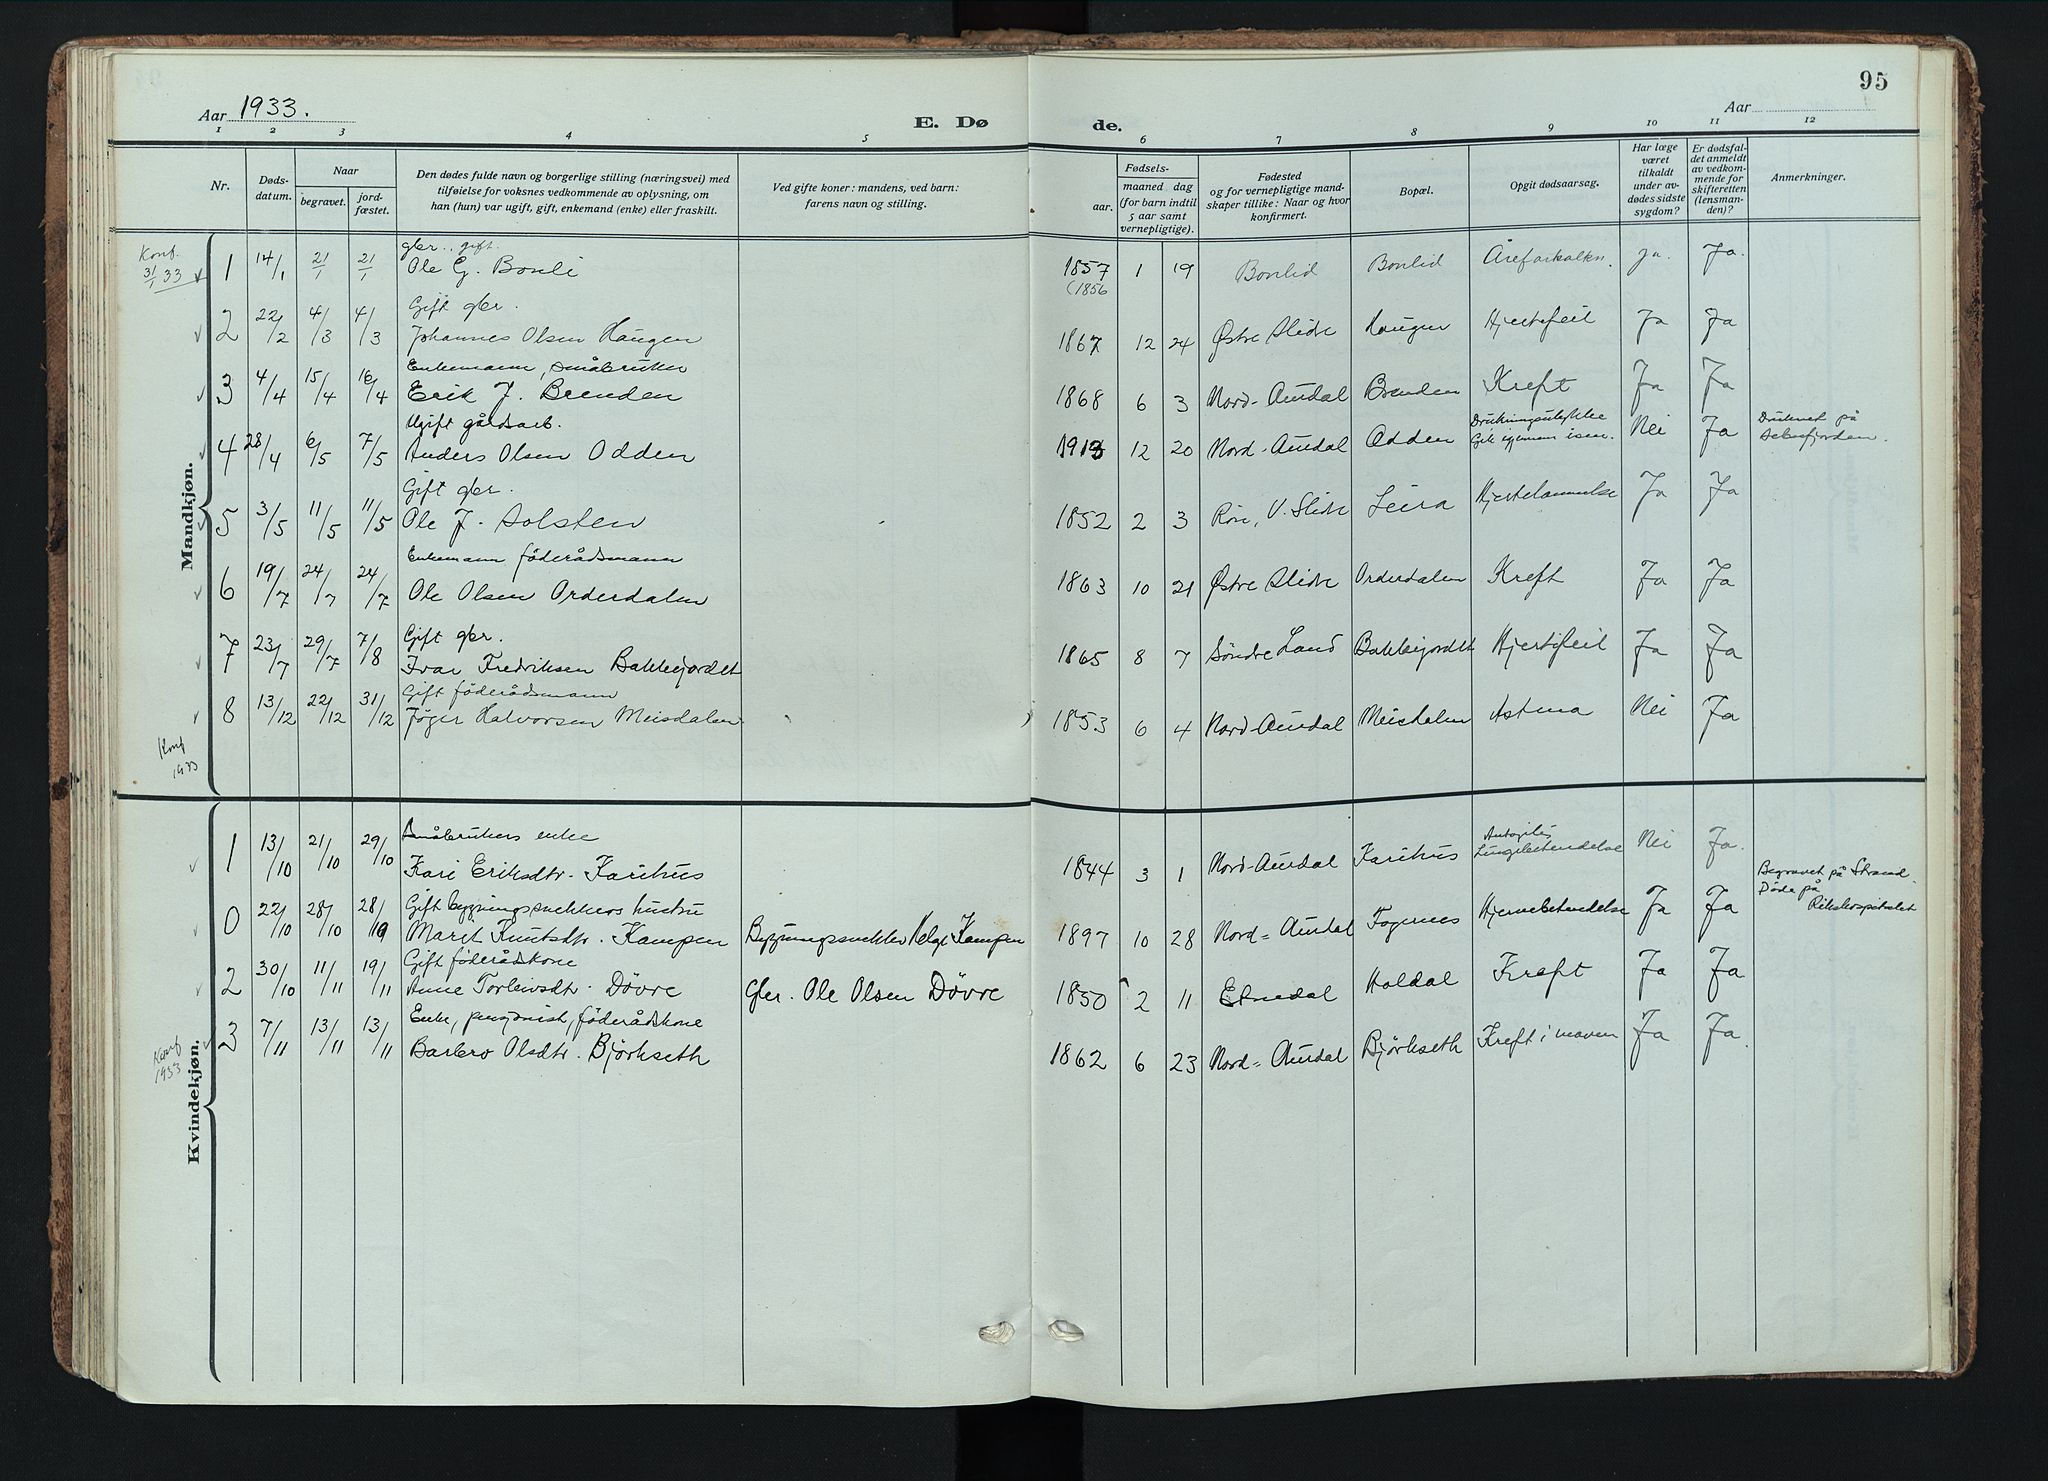 95
Aar 1933.
Aar
E. Dø
de.
1 2 3 4 5 6 7 8 9 10 11 12
Nr.
Døds-
datum.
Naar
begravet.
jord-
fæstet.
Den dødes fulde navn og borgerlige stilling (næringsvei) med
tilføielse for voksnes vedkommende av oplysning, om
han (hun) var ugift, gift, enkemand (enke) eller fraskilt.
Ved gifte koner: mandens, ved barn:
farens navn og stilling.
Fødsels-
aar.
maaned dag
(for barn indtil
5 aar samt
vernepligtige).
Fødested
og for vernepligtige mand-
skaper tillike: Naar og hvor
konfirmert.
Bopæl.
Opgit dødsaarsag.
Har læge
været
tilkaldt
under av-
dødes sidste
sygdom?
Er dødsfal-
det anmeldt
av vedkom-
mende for
skifteretten
(lensman-
den)?
Anmerkninger.
Mandkjøn.
Konf.
31/1 33
gbr., gift.
1 14/1 21/1 21/1 Ole G. Bonli 1857 1 19 Bonlid Bonlid Åreforkalkn. ja. Ja.
(1856
Gift gbr.
2 22/2 4/3 4/3 Johannes Olsen Haugen 1867 12 24 Østre Slidre Haugen Hjertefeil Ja Ja
Enkemann, småbruker
3 4/4 15/4 16/4 Erik J. Brenden 1868 6 3 Nord-Aurdal Brenden Kreft Ja Ja
Ugift gårdsarb.
4 28/4 6/5 7/5 Anders Olsen Odden 1913 12 20 Nord-Aurdal Odden Drukningsulykke
Gik igjennem isen. Nei Ja Druknet på
Gift gbr.
5 3/5 11/5 11/5 Ole J. Solsten 1852 2 3 V. Slidre Leira Hjertelammelse Ja Ja
Enkemann föderådsmann
6 19/7 24/7 24/7 Ole Olsen Orderdalen 1863 10 21 Østre Slidre Orderdalen Kreft Ja Ja
Gift gbr.
7 23/7 29/7 7/8 Ivar Fredriksen Bakkegjordet 1865 8 7 Søndre Land Bakkegjordet Hjertefeil Ja Ja
Gift föderådsmann
8 13/12 22/12 31/12 Jøger Halvorsen Meisdalen 1853 6 4 Nord-Aurdal Meisdalen Astma Nei Ja
Konf
1933
Kvindekjøn.
Småbrukers enke
1 13/10 21/10 29/10 Kari Eriksdtr. Karihus 1844 3 1 Nord-Aurdal Karihus
Lungebetendelse Nei Ja.
Gift bygningssnekkers hustru
0 22/10 28/10 28/10 Marit Knutsdtr. Kampen Bygningssnekker Helge Kampen 1897 10 28 Nord-Aurdal Fagernes Hjernebetendelse Ja Ja
Begravet på Strand.
Døde på
Rikshospitalet
Gift föderådskone
2 30/10 11/11 19/11 Anne Torleivsdtr. Døvre Gbr. Ole Olsen Døvre 1850 2 11 Etnedal Holdal Kreft Ja Ja
Enke, pensjonist, föderådskone
3 7/11 13/11 13/11 Barbro Olsdtr. Bjørkseth 1862 6 23 Nord-Aurdal Bjørkseth Kreft i maven Ja Ja.
Konf
1933